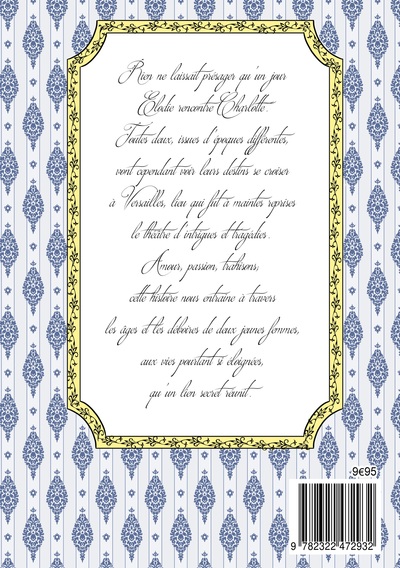 Rien ne laissait présager qu'un jour
Elodie rencontre Charlotte.
Toutes deux, issues d'époques différentes,
vont cependant voir leurs destins se croiser
à Versailles, lieu qui fut à maintes reprises
le théâtre d'intrigues et tragédies.
Amour, passion, trahisons,
cette histoire nous entraine à travers
les âges et les déboires de deux jeunes femmes,
aux vies pourtant si éloignées,
qu'un lien secret réunit.
9€95
9 782322 472932